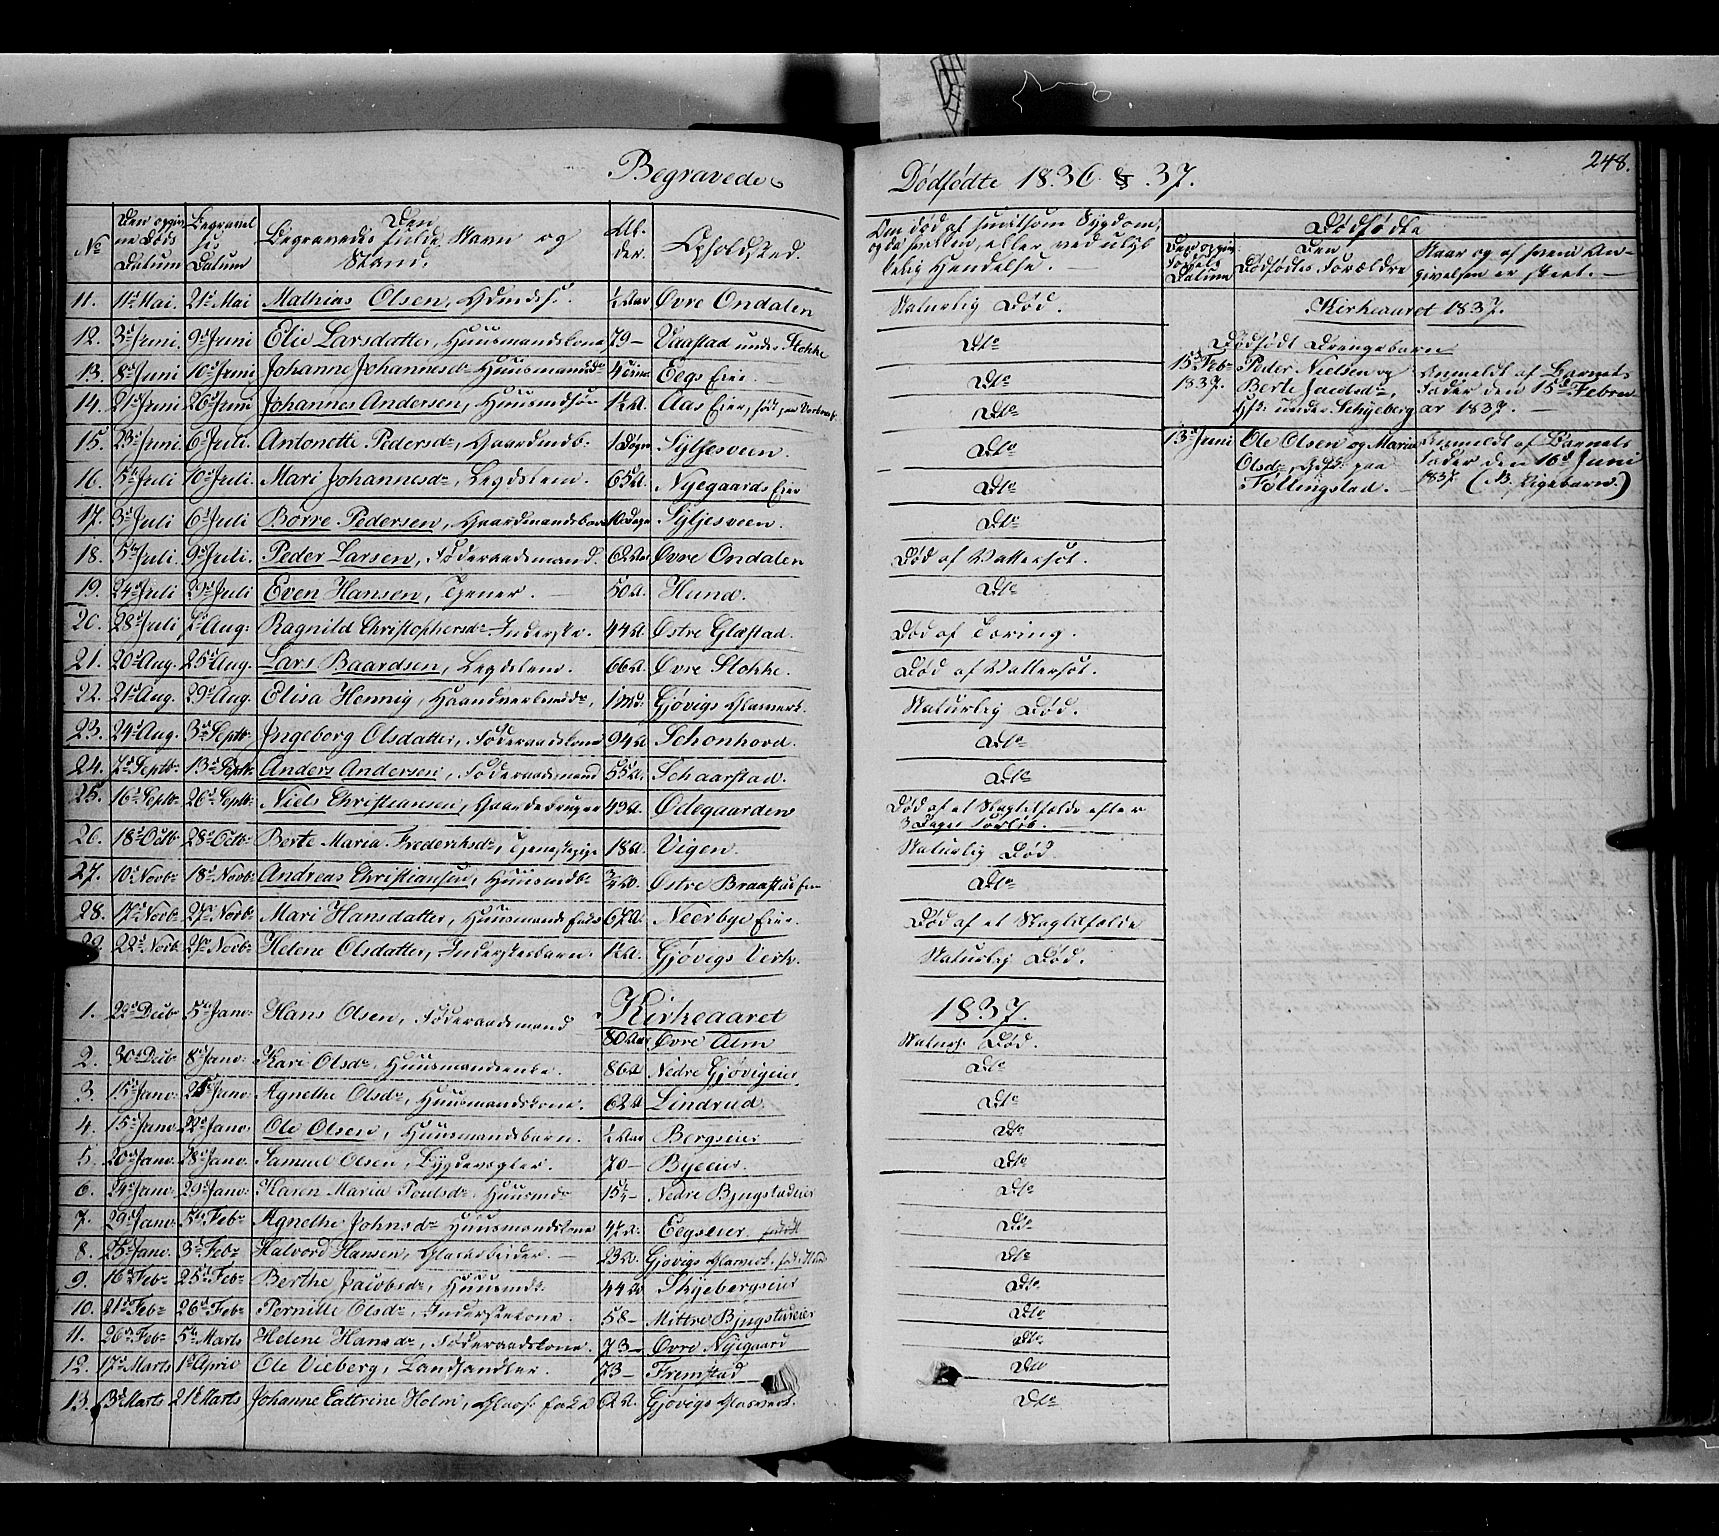 Begravede
Dødfødte 1836 & 37.
248.
No
Den opgivne Døds Datum
Begravelses Datum
Den Begravedes fulde Navn og Stand.
Alder.
Opholdsted.
Om død af smitsom Sygdom, og da hvilken, eller ved ulykkelig Hændelse.
Dødfødte
Den opgivne Fødsels Datum
Den Dødfødtes Forældre
Naar og af hvem Angivelsen er skeet.
11. 11te Mai. 21de Mai Mathias Olsen, ½ Aar Øvre Ondalen Naturlig Død.
12. 3de Juni. 9de Juni Elie Larsdatter, Huusmandskone 79 — Vaastad under Stokke Dto
13. 8de Juni 10de Juni Johanne Johannesdr Huusmands Eegs Eier. Dto
14. 21de Juni 26de Juni Johannes Andersen, Huusmdsøn 1½ A. Aas Eier, Dto
15. 23de Juni. 6te Juli. Antonette Pedersdr, Gaardmdb. 1 Døgn Sylfesveen. Dto
16. 5te Juli 10de Juli. Mari Johannesdr, Legdslem. 65 A. Nyegaards Eier Dto
17. 3de Juli 6te Juli. Børre Pedersen, Gaardmandsbarn 10 Dage Syljesveen. Dto
18. 5te Juli. 9de Juli. Peder Larsen, Føderaadsmand. 62 Aar Øvre Ondalen Død af Vattersot.
19. 24de Juli 29de Juli Even Hansen, Tjener. 50 A. Hund. Dto
20. 28de Juli Aug: Ragnild Christophersdr Inderske. 44 A. Østre Glæstad. Død af Tæring.
21. 20de Aug. 25de Aug. Lars Baardsen, Legdslem. 66 A. Øvre Stokke. Død af Vattersot.
22. 21de Aug. 29de Aug. Elisa Hennig, Gjøvigs Glasværk. Naturlig Død.
23. 24de Aug. 3de Septbr Ingeborg Olsdatter, Føderaadskone 94 A Schonhovd. Dto
24. 7de Septbr 13de Septbr Anders Andersen, Føderaadsmand 55 A. Schaarstad. Dto
25. 16de Septbr 26de Septbr Niels Christiansen, Gaardbruger 49 A. Ødegaarden Død af et Slagtilfælde efter 3 Dages Forløb.
26. 18de Octbr 28de Octbr Berte Maria Frederiksdr, Tjenestepige 18 A. Vigen. Naturlig Død.
27. 10de Novbr 18de Novbr Andreas Christiansen, Huusmdb. ¾ A. Østre Braastad Eie Dto
28. 17de Novbr 27de Novbr Mari Hansdatter, Huusmands Enke 67 A. Neerbye Eier. Død af et Slagtilfælde
29. 22de Novb. 27de Novbr Helene Olsdatter, Inderstesbarn. 1½ A. Gjøvigs Verk. Naturlig Død.
Kirkeaaret 1837.
1. 29de Decbr 5te Janv: Hans Olsen, Føderaadsmand 80 Aar Øvre Alm Naturl. Død.
2. 30te Decbr 8de Janv: Kari Olsdr, Huusmandsenke. 86 A Nedre Gjøvigeier Dto
3. 15de Janv: 25de Janv: Agnethe Olsdr, Huusmandskone. 62 A Lindrud. Dto
4. 15de Janv. 22de Janv. Ole Olsen, Huusmandsbarn. ½ Aar Bergseier Dto
5. 20de Janv. 28de Janv. Samuel Olsen, Bygdevogter. 70 — Byeeier. Dto
6. 24de Janv. 29de Janv. Karen Maria Poulsdr, Huusmdr 15¼ — Nedre Bjugstadeier Dto
7. 29de Janv: 5te Febr Agnethe Johnsdr Huusmandskone 47 A. Eegseier Dto
8. 25de Janv. 3de Febr Halvord Hansen, Glasarbeider. — 23 A. Gjøvigs Glasværk, Dto
9. 16de Febr 25de Febr Berthe Jacobsdr, Huusmdk. 44 A Skyebergseier Dto
10. 21de Febr 26de Febr Pernille Olsdr, Inderstekone. 58 — Mittre Bjugstadeier Dto
11. 26de Febr 5te Marts Helene Hansdr, Føderaadskone. 73 — Øvre Nyegaard Dto
12. 17de Marts 1te April Ole Vieberg, Landhandler. 73 — Fremstad Dto
13. 13de Marts 21de Marts Johanne Cattrine Holm, Enke 62 A. Gjøvigs Glasværk. Dto
Kirkeaaret 1837.
Dødfødt Drengebarn
15de Febr 1837. Peder Nielsen og Berte Jacobsdr, Hfk: under Schyeberg
Anmeldt af Barnets Fader den 15de Februar 1837. —
13de Juni Ole Olsen og Maria Olsdr, Gift: paa Føllingstad. —
Anmeldt af Barnets Fader den 16de Juni 1837 (NB. Pigebarn.)